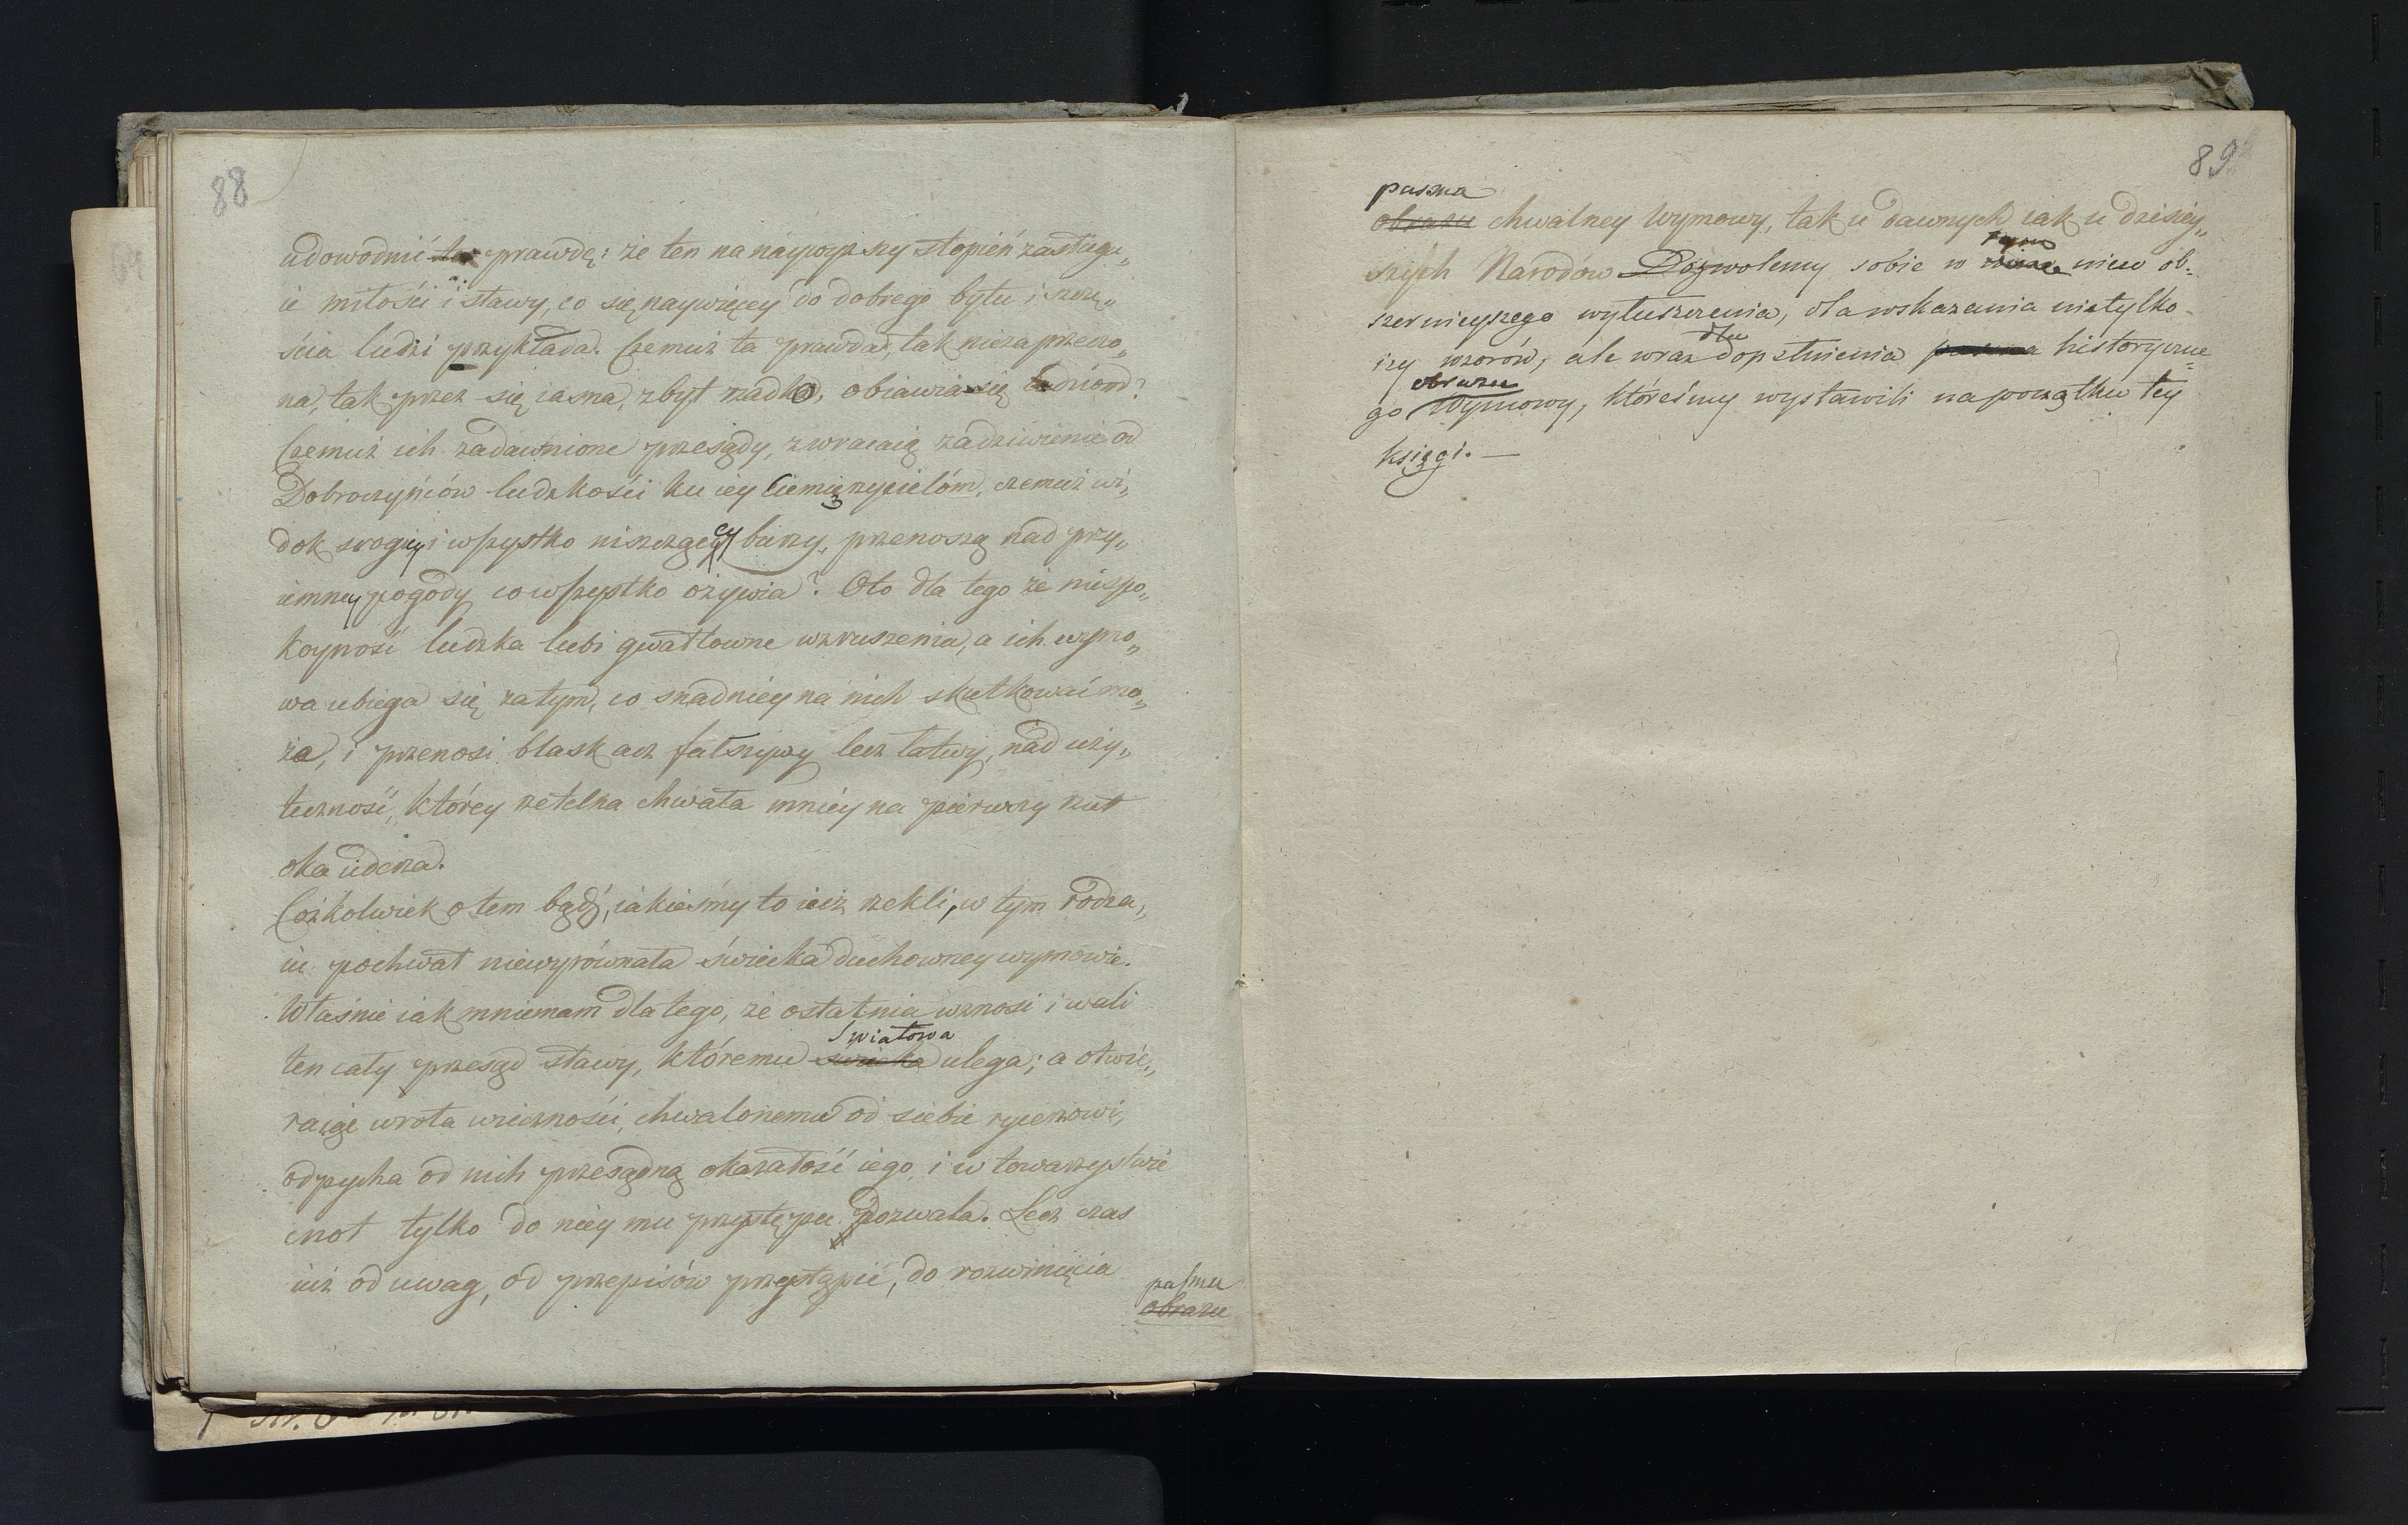 88
udowodnić tę prawdę: że ten na náywyższy stopień zasługu„
ie miłości i sławy, co się naywięcey do dobrego bytu i szczę„
ścia ludzi przykłada. Czemuż ta prawda, tak niezaprzeczo„
na, tak przez się iasna, zbyt rzadko, obiawia się ludziom?
Czemuż ich zadawnione przesądy, zwracaią zadziwienie od
Dobroczyńców ludzkości ku iey Ciemięzycielóm, czemuż wi„
dok srogiey i wszystko niszczącey burzy, przenoszą nad przy„
iemney pogody co wszystko ożywia? Oto dla tego że niespo„
koyność ludzka lubi gwałtowne wzruszenia, a ich wymo„
wa ubiega się za tym, co snadniéy na nich skutkować mo„
że, i przenosi blask acz fałszywy lecz łatwy, nád uży„
teczność, którey rzetelna chwała mniéy na piérwszy rzut
oka uderza.
Cożkolwiek o tem bądź, iakieśmy to iuż rzekli, w tym rodza„
iu pochwał niewyrównała świecka duchowney wymowie.
Właśnie iak mniemam dla tego, że ostatnia wznosi i wali
Światowa
ten cały przesąd sławy, któremu świecka ulega; a otwie„
raiąc wrota wieczności, chwalonemu od siebie rycerzowi,
odpycha od nich przesądną okazałość iego, i w towarzystwie
cnot tylko do niéy mu przystępu dozwala. Lecz czas
iuż od uwag, od przepisów przystąpić, do rozwinięcia
pasma
obrazu
89
pasma
obrazu chwalney Wymowy, tak u dawnych iak u dzisiéy„
szych Narodów Dozwolemy sobie w niem ob„
szernieyszego wyłuszczenia, dla wskazania nietylko
iey wzorów, ale wraz dla dopełnienia pasma historyczne„
obrazu
go Wymowy, któreśmy wystawili na początku tey
księgi. —